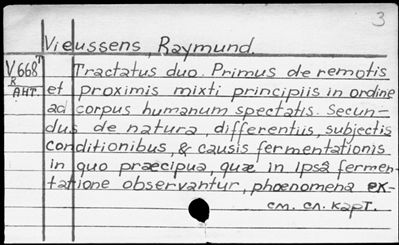 3
Vieussens, Raymund.
V668т Tractatus duo. Primus de remotis
R et proximis mixti principiis in ordine
АНТ. ad corpus humanum spectatis. Secun-
dus de natura, differentiis, subjectis
conditionibus, & causis fermentationis
in quo praecipua, quæ in ipsâ fermen-
tatione observantur, phoenomena ex-
см. сл. карт.